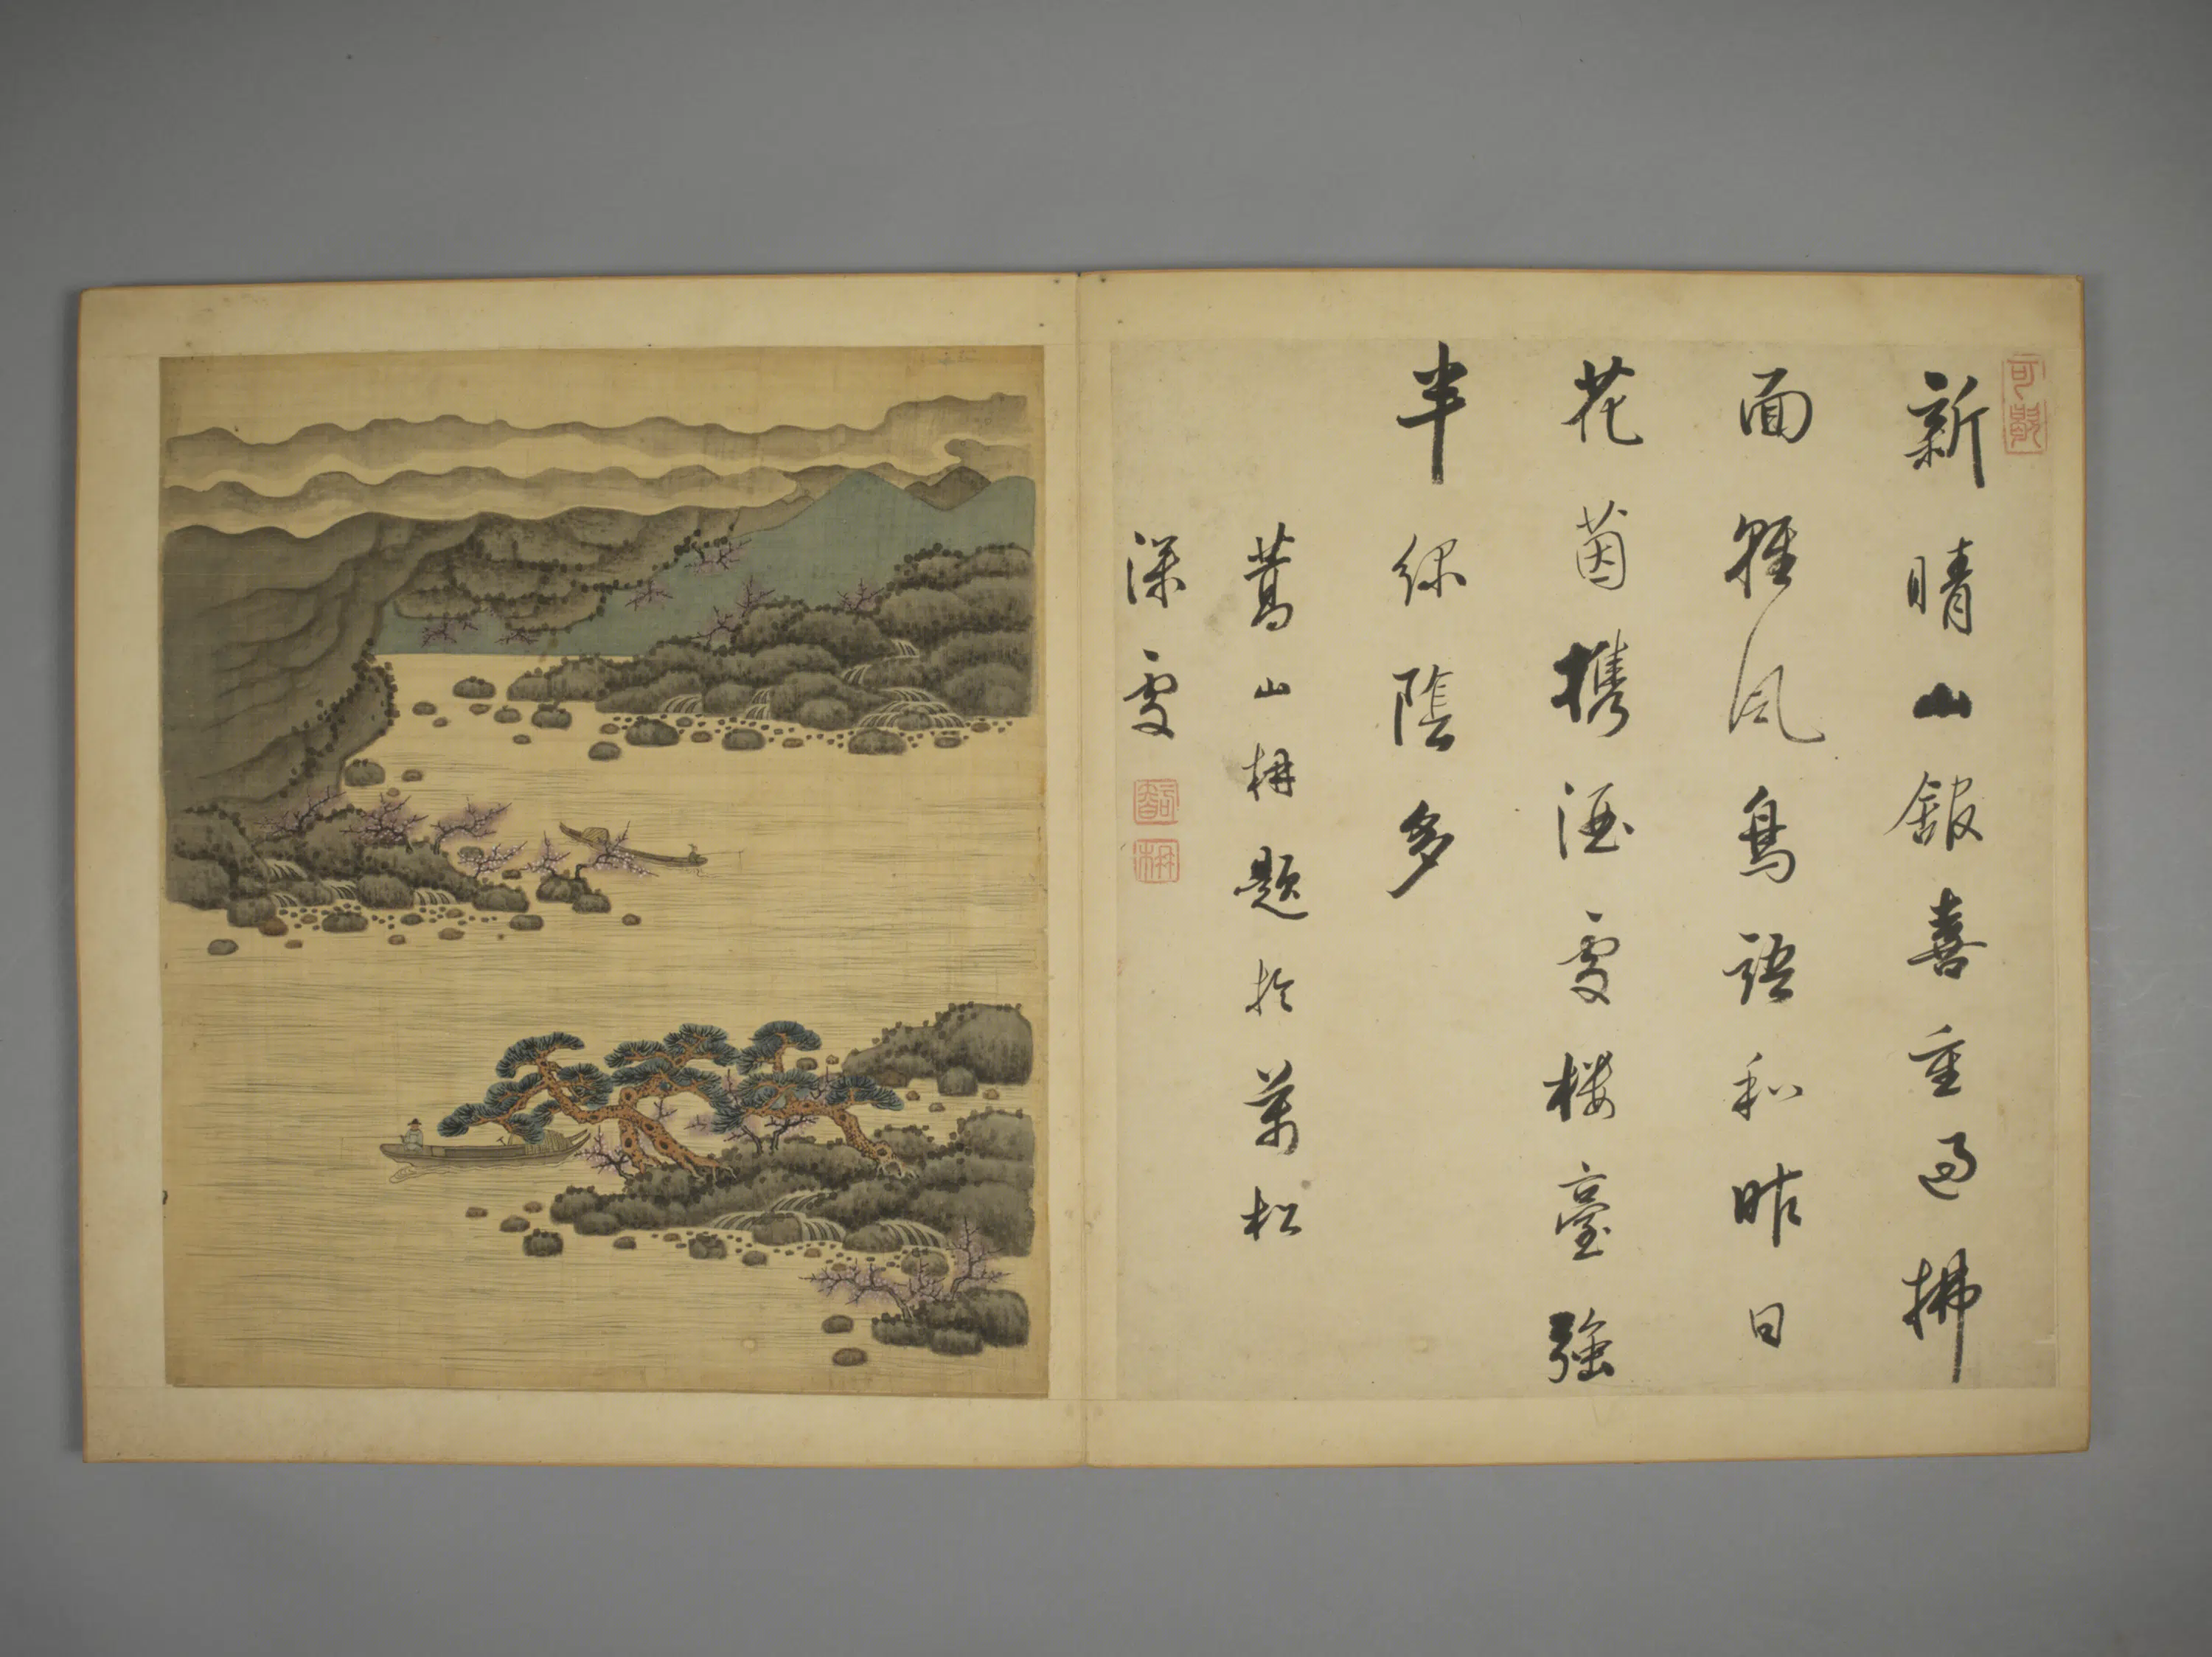 新晴山館喜重過拂
面輕風鳥語和昨日
花茵攜酒處樓臺強
半綠陰多
山題於萬松
深處